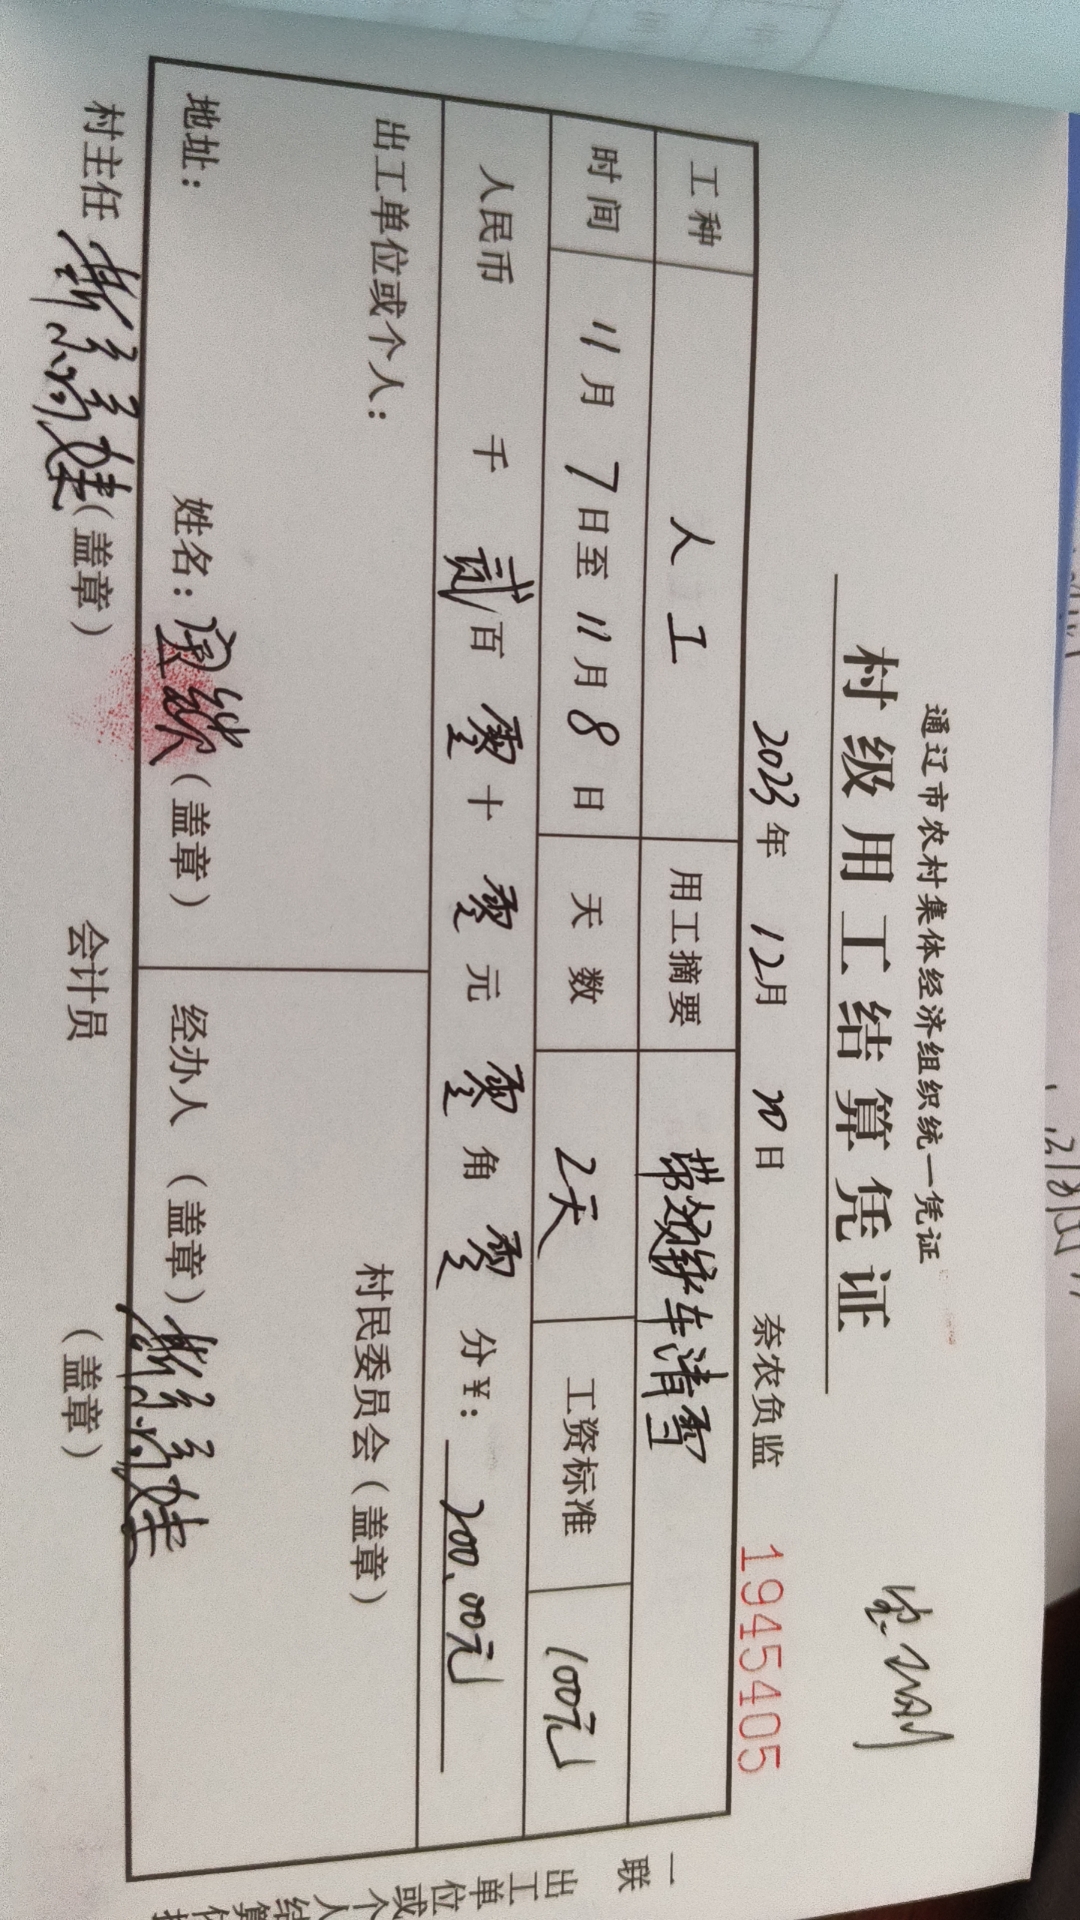 通辽市农村集体经济组织统一凭证
村级用工结算凭证
2023年 12月 20日 奈农负监 1945405
工种 人工 用工摘要 带领铲车清雪
时间 11月7日至11月8日 天数 2天 工资标准 100元
人民币 千 贰百 零十 零元 零角 零分 ¥: 200.00元
出工单位或个人: 村民委员会(盖章)
地址: 姓名: (盖章) 经办人 (盖章)
村主任 (盖章) 会计员 (盖章)
一联 出工单位或个人结算